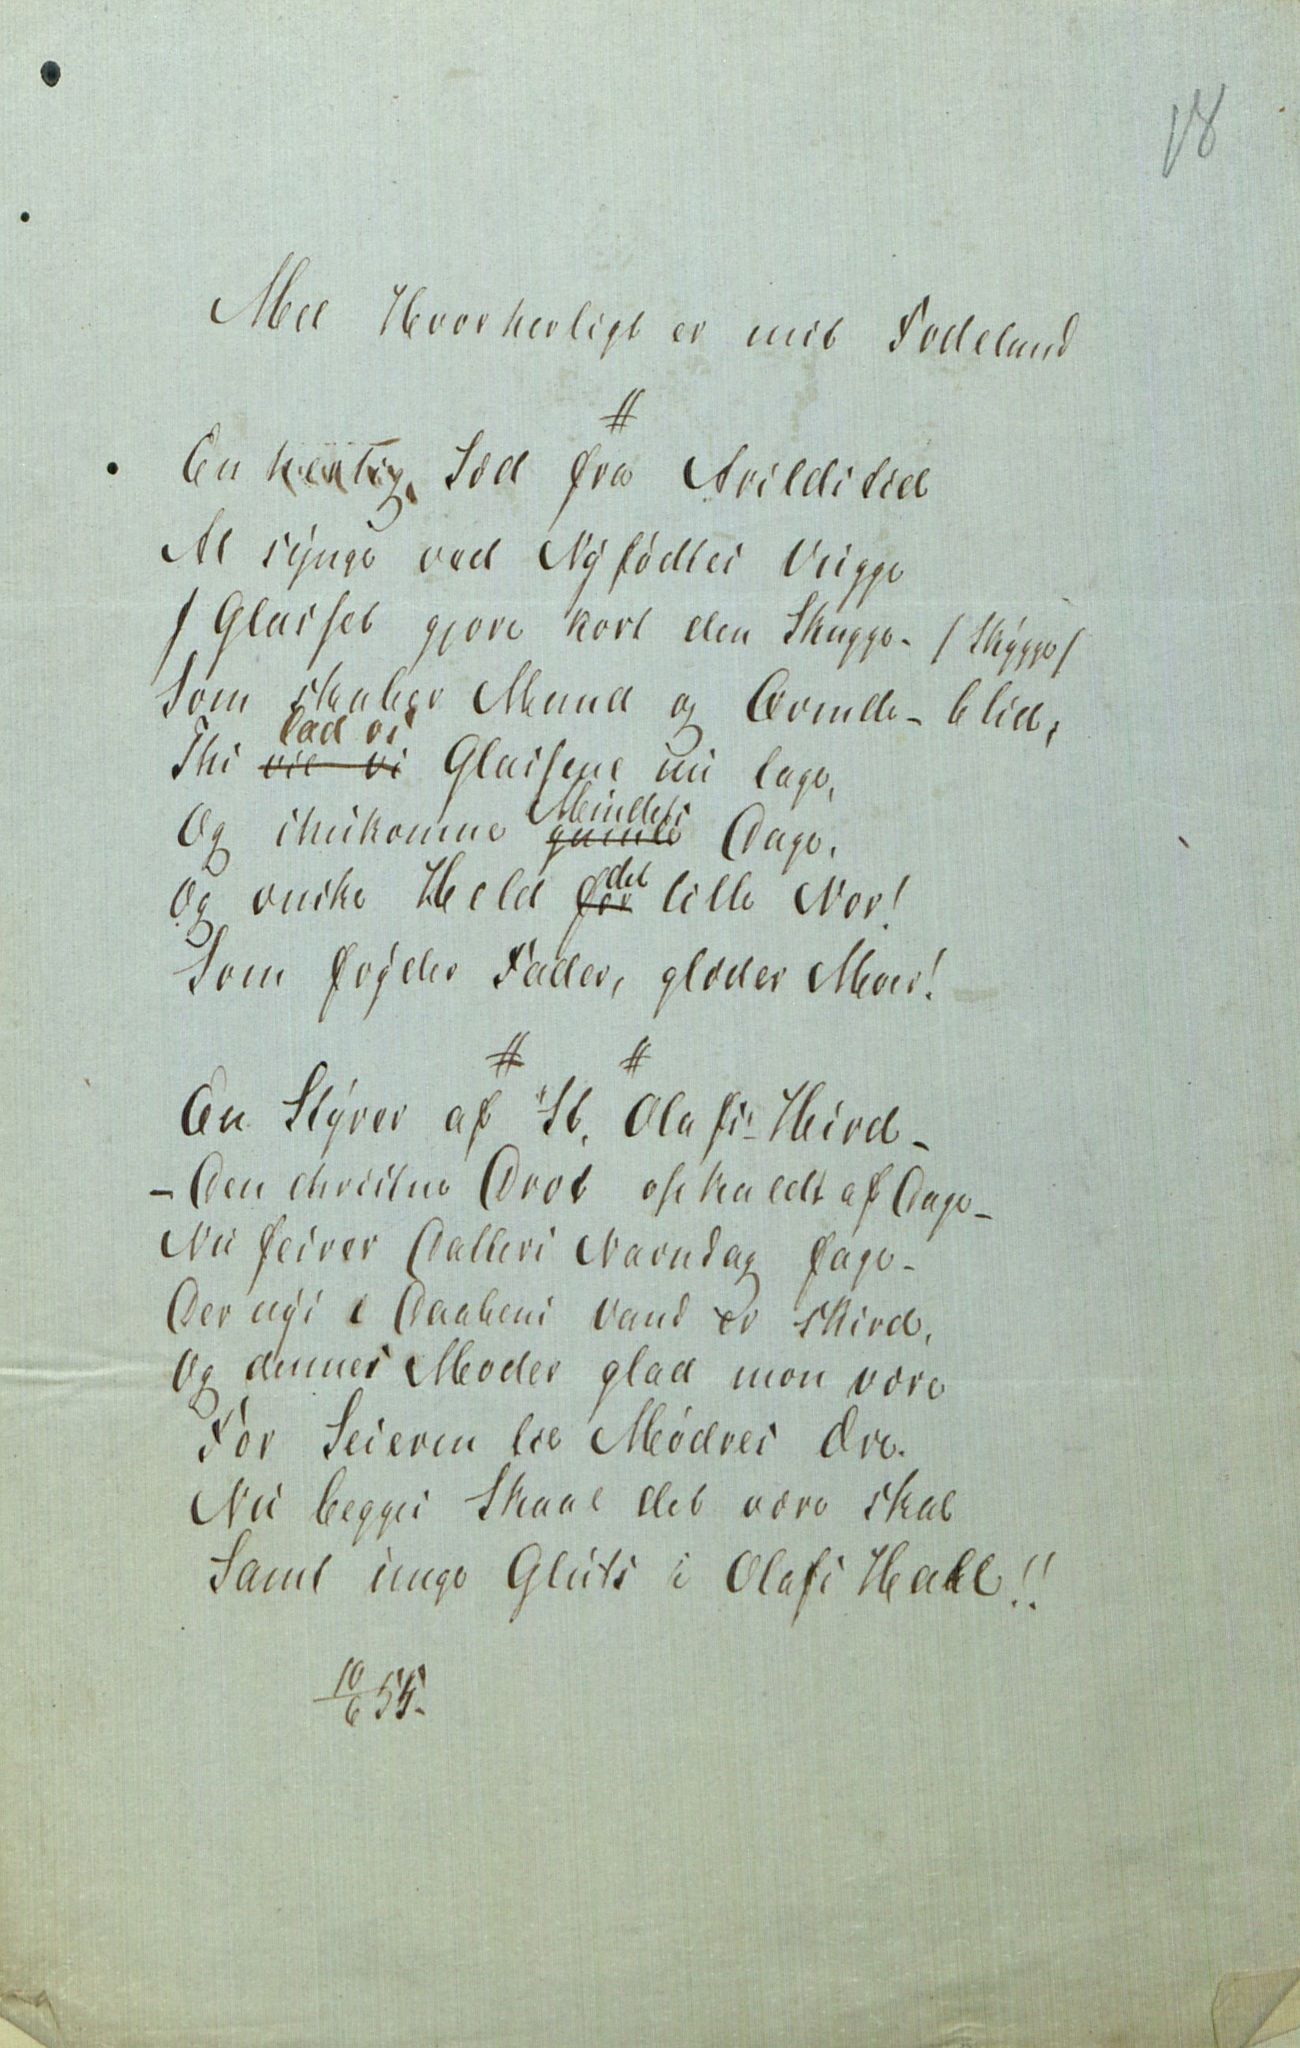 18
Mel Hvor herligt er mit Fødeland
#
En herlig Sæd fra Arilds tid
At synge ved Nyfødtes Vugge
I Glasset gjøre kort den Skugge- / Skygge /
Som skaber Mand og Qvinde- blid,
Thi lad vi ~~vil vi~~ Glassene nu tage,
Og ihukomme Mindets ~~gamle~~ Dage.
Og ønske Held det ~~for~~ lille Nor!
Som fryder Fader, glæder Moer!
# #
En Styrer af "St. Olafs" Hird-
- Den christne Drot opkaldt af Dage-
Nu feirer Datters Navndag fage-
Der nys i Daabens Vand er skird,
Og dennes Moder glad mon være
For Seieren til Mødres Ære.
Nu begges Skaal det være skal
Samt unge Gluts i Olafs Hall!!
10/6 55.